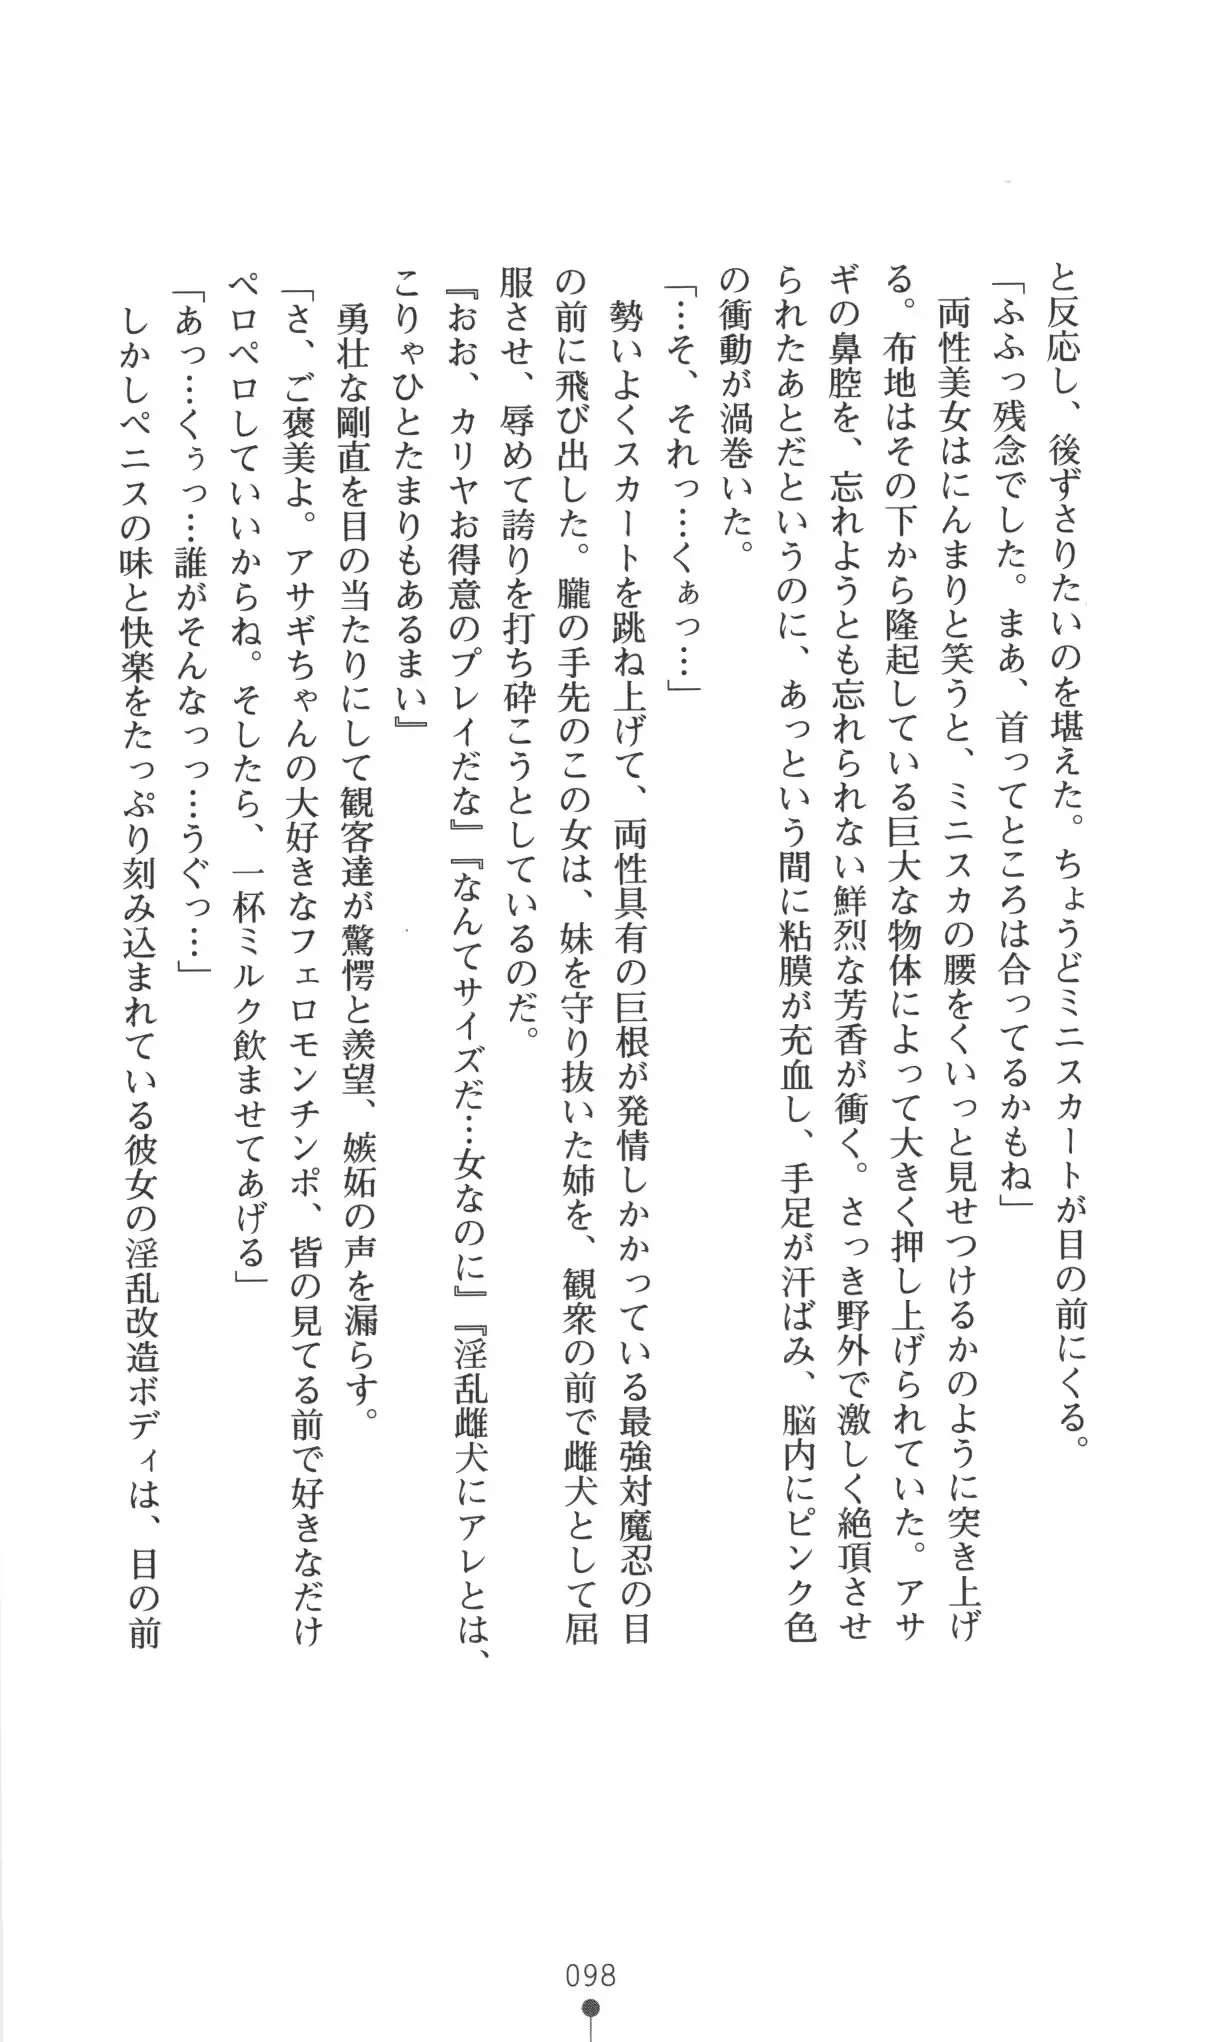 と反応し、後ずさりたいのを堪えた。ちょうどミニスカートが目の前にくる。
「ふふっ残念でした。まあ、首ってところは合ってるかもね」
両性美女はにんまりと笑うと、ミニスカの腰をくいっと見せつけるかのように突き上げ
る。布地はその下から隆起している巨大な物体によって大きく押し上げられていた。アサ
ギの鼻腔を、忘れようとも忘れられない鮮烈な芳香が衝く。さっき野外で激しく絶頂させ
られたあとだというのに、あっという間に粘膜が充血し、手足が汗ばみ、脳内にピンク色
の衝動が渦巻いた。
「…そ、それっ…くぁっ…」
勢いよくスカートを跳ね上げて、両性具有の巨根が発情しかかっている最強対魔忍の目
の前に飛び出した。朧の手先のこの女は、妹を守り抜いた姉を、観衆の前で雌犬として屈
服させ、辱めて誇りを打ち砕こうとしているのだ。
『おお、カリヤお得意のプレイだな』『なんてサイズだ…女なのに』『淫乱雌犬にアレとは、
こりゃひとたまりもあるまい』
勇壮な剛直を目の当たりにして観客達が驚愕と羨望、嫉妬の声を漏らす。
「さ、ご褒美よ。アサギちゃんの大好きなフェロモンチンポ、皆の見てる前で好きなだけ
ペロペロしていいからね。そしたら、一杯ミルク飲ませてあげる」
「あっ…くぅっ…誰がそんなっっ…うぐっ…」
しかしペニスの味と快楽をたっぷり刻み込まれている彼女の淫乱改造ボディは、目の前
098